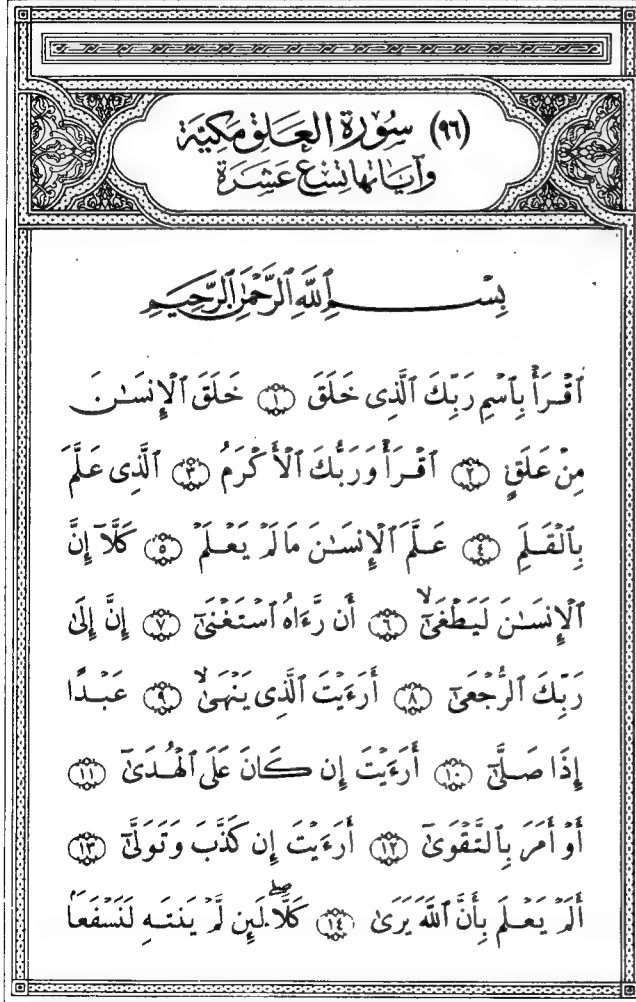 (٩٦) سُورَةُ الْعَلَقِ مَكِّيَّة
وَآيَاتُهَا تِسْعَ عَشِرَة
بِسْمِ ٱللَّهِ ٱلرَّحْمَٰنِ ٱلرَّحِيمِ
ٱقْرَأْ بِٱسْمِ رَبِّكَ ٱلَّذِى خَلَقَ ١ خَلَقَ ٱلْإِنسَـٰنَ
مِنْ عَلَقٍ ٢ ٱقْرَأْ وَرَبُّكَ ٱلْأَكْرَمُ ٣ ٱلَّذِى عَلَّمَ
بِٱلْقَلَمِ ٤ عَلَّمَ ٱلْإِنسَـٰنَ مَا لَمْ يَعْلَمْ ٥ كَلَّآ إِنَّ
ٱلْإِنسَـٰنَ لَيَطْغَىٰٓ ۙ ٦ أَن رَّءَاهُ ٱسْتَغْنَىٰٓ ٧ إِنَّ إِلَىٰ
رَبِّكَ ٱلرُّجْعَىٰٓ ٨ أَرَءَيْتَ ٱلَّذِى يَنْهَىٰ ۙ ٩ عَبْدًا
إِذَا صَلَّىٰٓ ١٠ أَرَءَيْتَ إِن كَانَ عَلَى ٱلْهُدَىٰٓ ١١
أَوْ أَمَرَ بِٱلتَّقْوَىٰٓ ١٢ أَرَءَيْتَ إِن كَذَّبَ وَتَوَلَّىٰٓ ١٣
أَلَمْ يَعْلَم بِأَنَّ ٱللَّهَ يَرَىٰ ١٤ كَلَّا ۖ لَئِن لَّمْ يَنتَهِ لَنَسْفَعًۢا